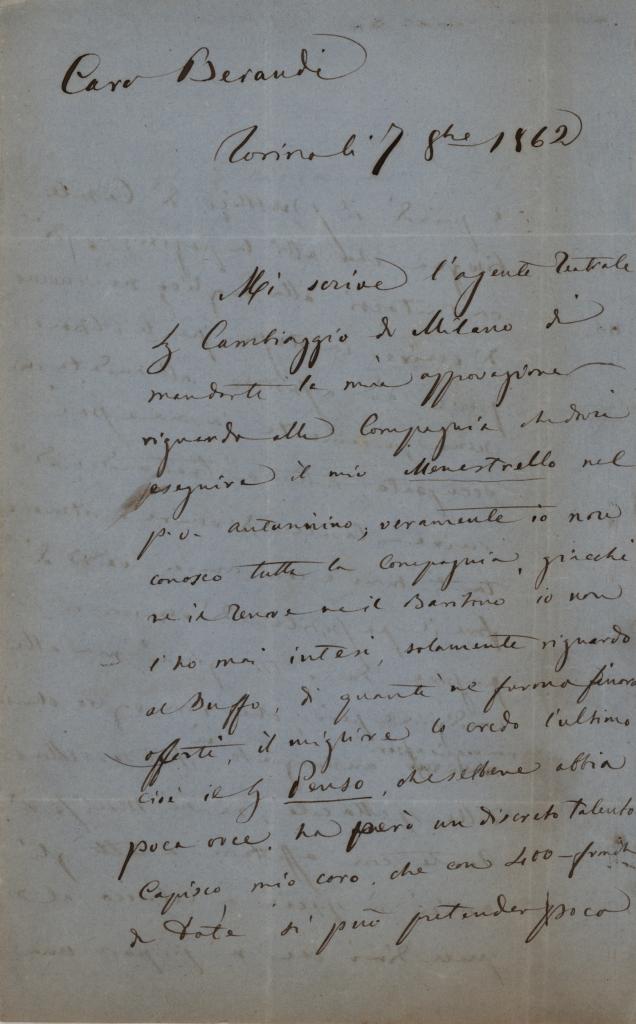 Caro Beraudi
Torino li 7 8bre 1862
Mi scrive l'agente teatrale
Sig Cambiaggio di Milano di
mandarti la mia approvazione
riguardo alla Compagnia che dovrà
eseguire il mio Menestrello nel
p.v. autunnino; veramente io non
conosco tutta la Compagnia, giacché
ne il Tenore ne il Baritono io non
l'ho mai intesi, solamente riguardo
al Buffo, di quanti ne furono finora
offerti, il migliore lo credo l'ultimo
cioè il Sig Penso, che sebbene abbia
poca voce, ha però un discreto talento
Capisco mio caro, che con 400 franchi
di dote si può pretender poco